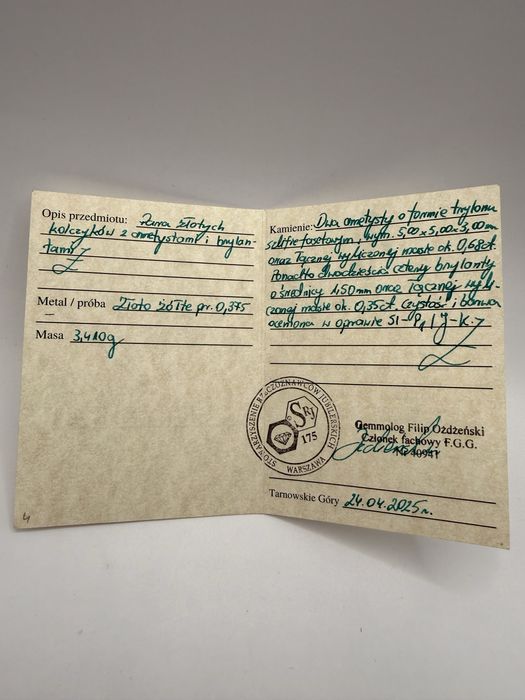 Opis przedmiotu: Para złotych
kolczyków z ametystami i brylan-
tami
Metal / próba Złoto żółte pr. 0,375
Masa 3,410g
4
Kamienie: Dwa ametysty o formie trylionu
szlifie fasetowym, wym. 5,00x5,00x3,00mm
oraz łącznej wyliczonej masie ok. 0,68ct.
Ponadto dwadzieścia cztery brylanty
o średnicy 1,50mm oraz łącznej wyli-
czonej masie ok. 0,35ct. Czystość i barwa
oceniona w oprawie SI-P1 / J-K.
STOWARZYSZENIE RZECZOZNAWCÓW JUBILERSKICH
SRJ
175
WARSZAWA
Gemmolog Filip Ożdżeński
Członek fachowy F.G.G.
Tarnowskie Góry 24.04.2025r.